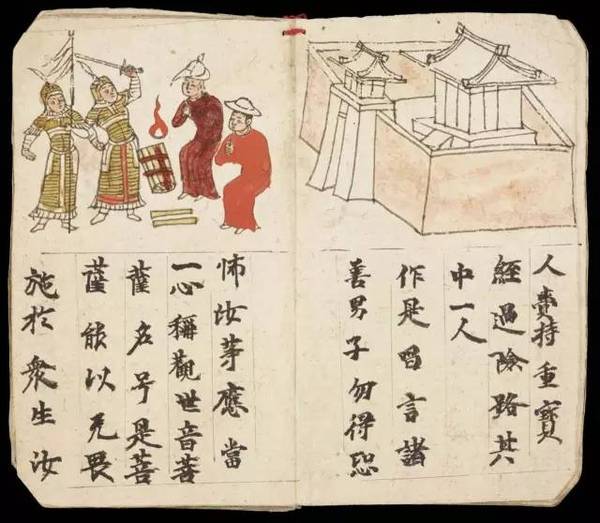 人賷持重寶
經過險路其
中一人
作是唱言諸
善男子勿得恐
怖汝等應當
一心稱觀世音菩
薩名号是菩
薩能以无畏
施於衆生汝